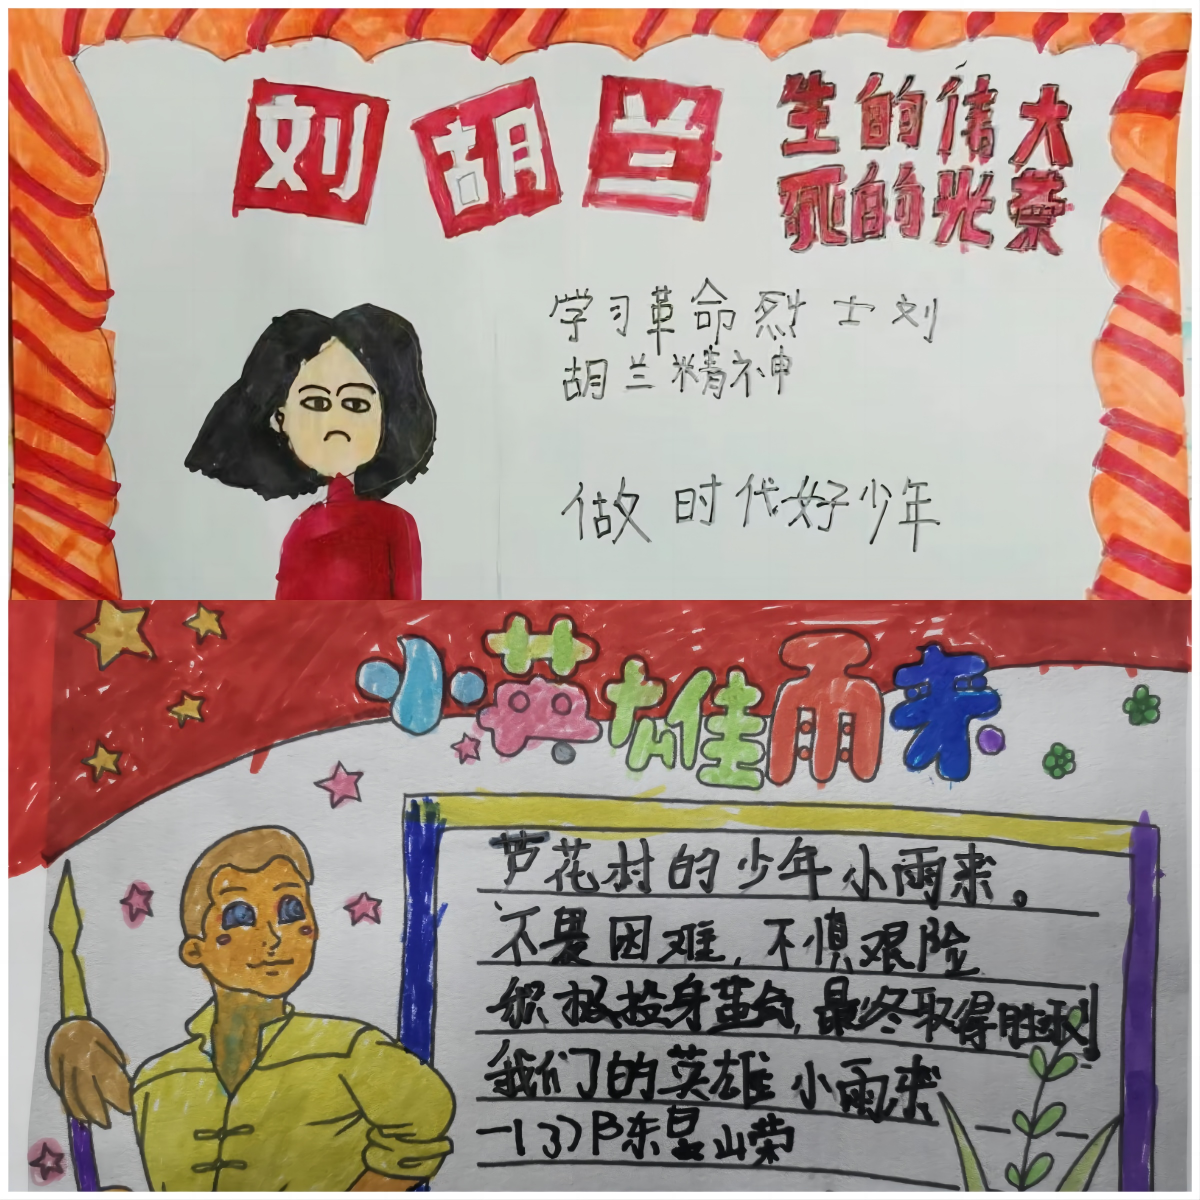 刘胡兰
生的伟大
死的光荣
学习革命烈士刘
胡兰精神
做时代好少年
小英雄雨来
芦花村的少年小雨来。
不畏困难,不惧艰险
积极投身革命,最终取得胜利
我们的英雄小雨来